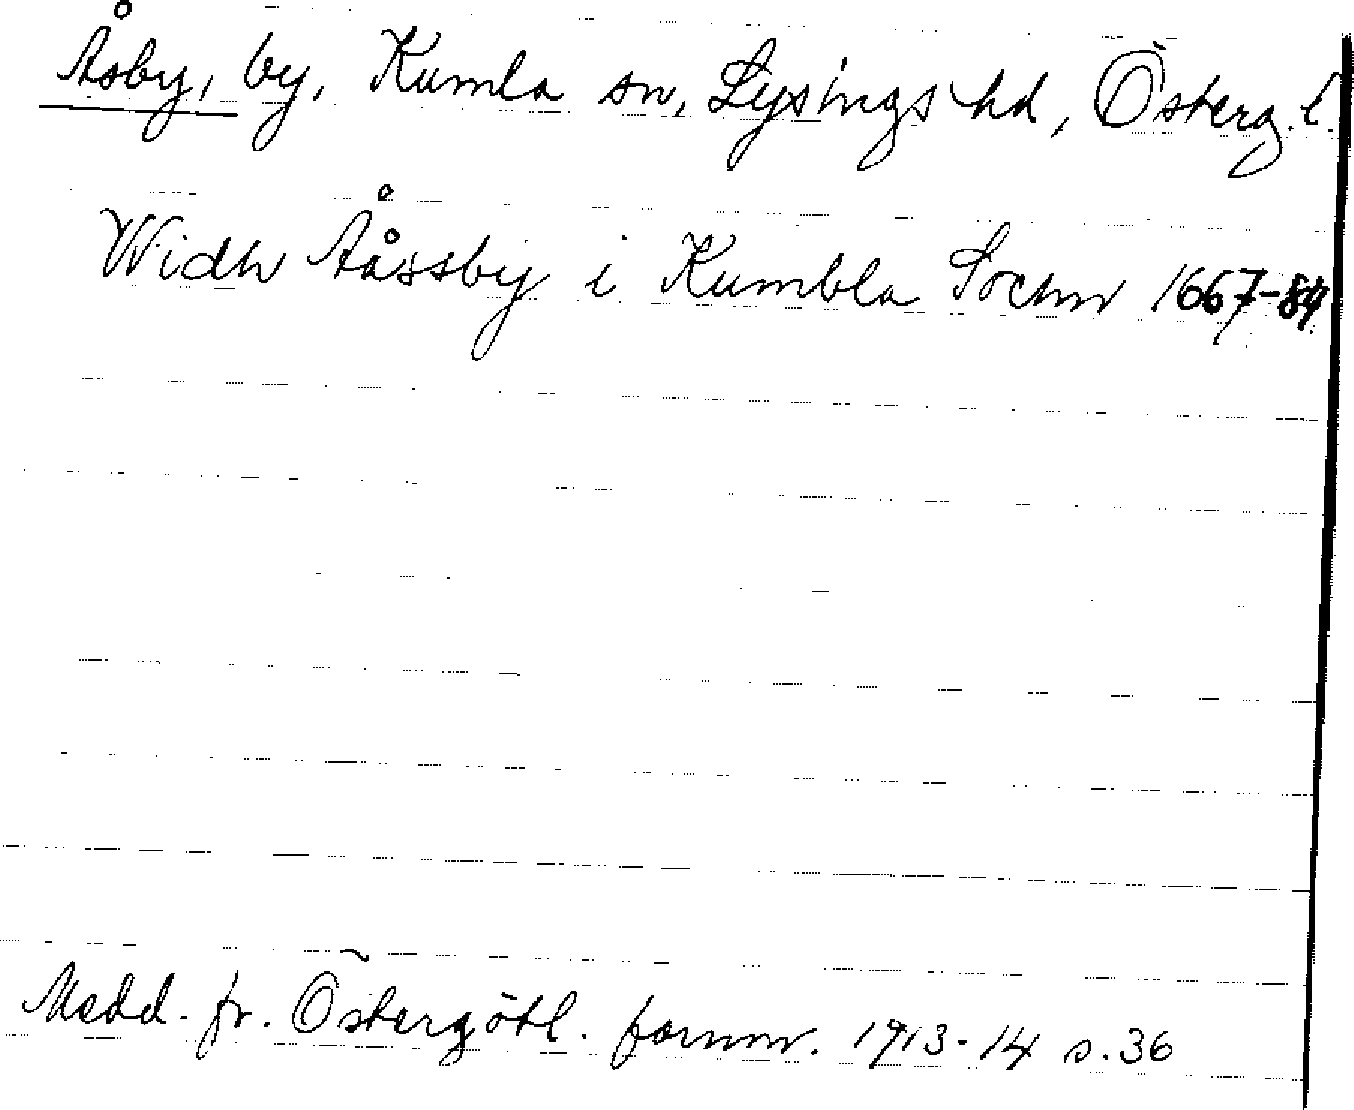 Åsby, by, Kumla sn, Lysings hd, Österg. l.
Widh Ååssby i Kumbla Sochn 1667-84
Medd. fr. Östergötl. fornm. 1913-14 s. 36